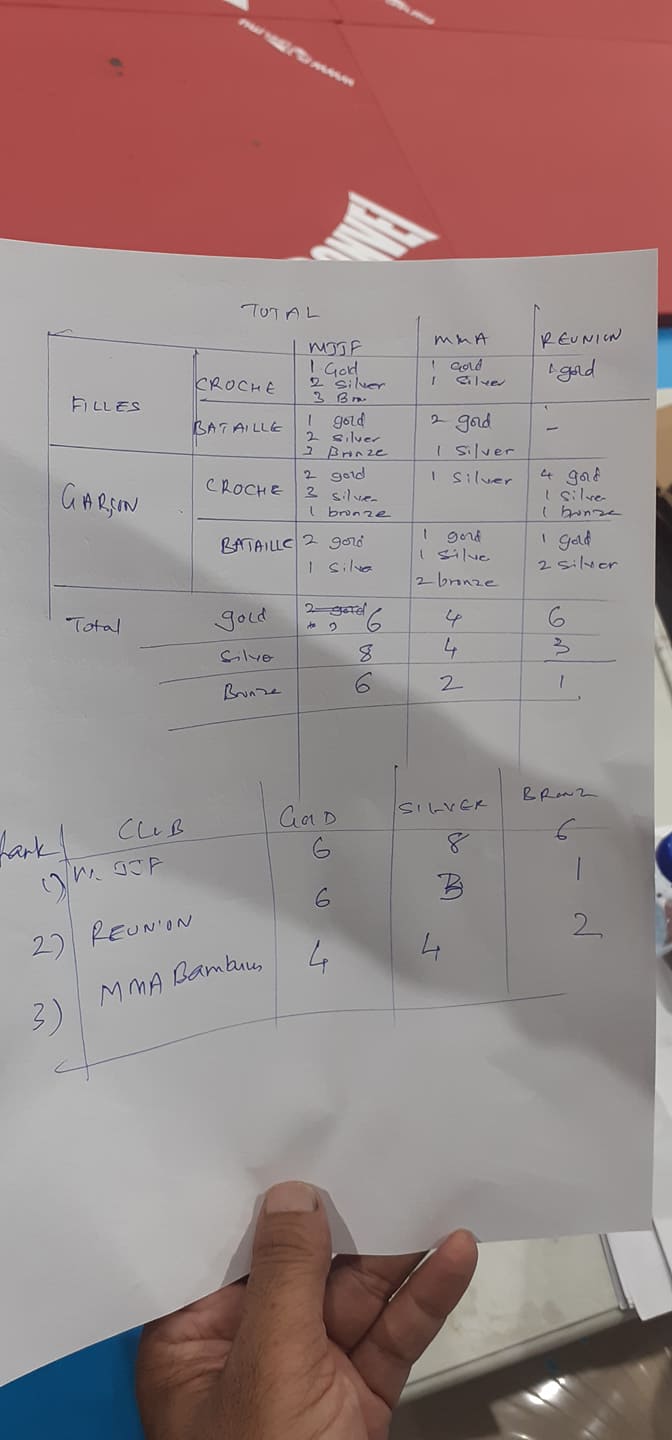 TOTAL
MJJF MMA REUNION
FILLES CROCHE 1 Gold 1 Gold 1 gold
2 Silver 1 Silver
3 Bro
BATAILLE 1 gold 2 gold -
2 silver 1 Silver
Bronze
GARÇON CROCHE 2 gold 1 Silver 4 gold
3 silver 1 silve
1 bronze 1 bronze
BATAILLE 2 gold 1 gold 1 gold
1 silve 1 silve 2 silver
2 bronze
Total gold 6 4 6
Silve 8 4 3
Bronze 6 2 1
Rank CLUB GOLD SILVER BRONZ
1) MJJF 6 8 6
2) REUNION 6 3 1
3) MMA Bambous 4 4 2